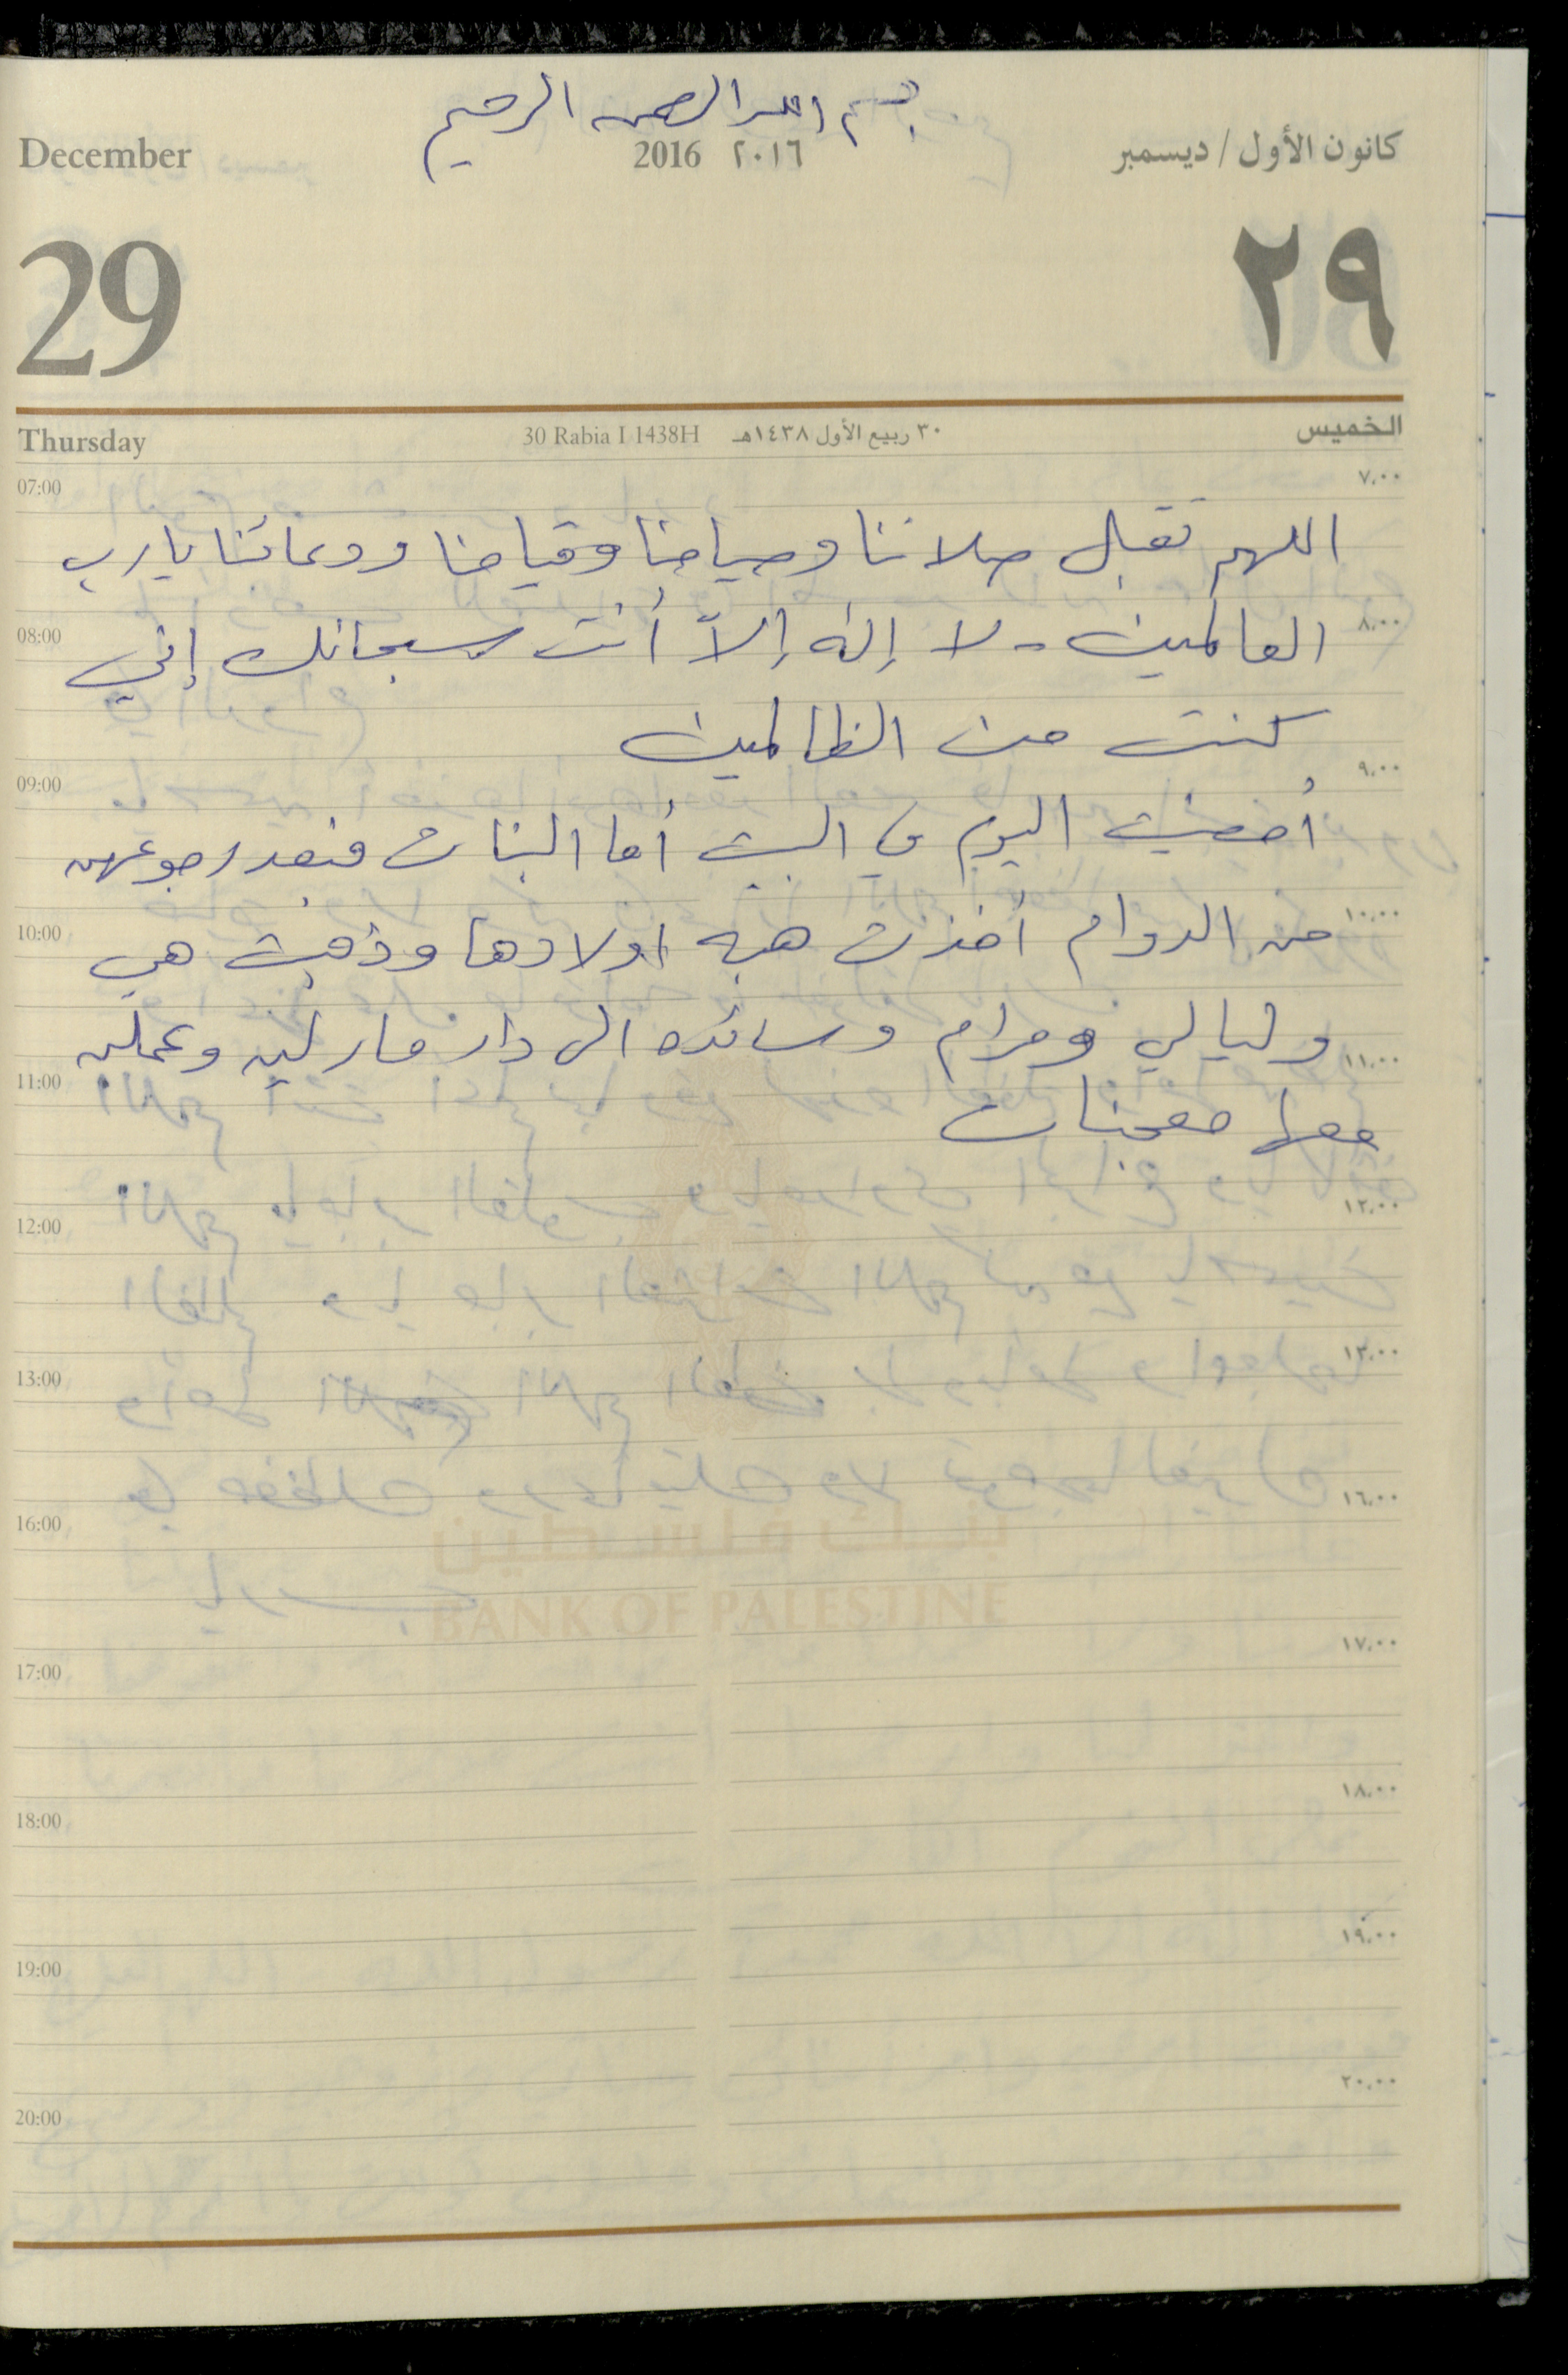 بسم الله الرحمن الرحيم
December 2016 ٢٠١٦ كانون الأول / ديسمبر
29 ٢٩
Thursday 30 Rabia I 1438H ٣٠ ربيع الأول ١٤٣٨هـ الخميس
07:00 ٧،٠٠
اللهم تقبل صلاتنا وصيامنا وقيامنا ودعائنا يارب
08:00 ٨،٠٠
العالمين - لا إله إلاّ أنت سبحانك إني
كنت من الظالمين
09:00 ٩،٠٠
أمضيت اليوم في البيت أما البنات فبعد رجوعهن
10:00 ١٠،٠٠
من الدوام أخذت هبه اولادها وذهبت هي
وليالي ومرام وسائده الى دار مارلين وعملن
11:00 ١١،٠٠
معها معجنات
12:00 ١٢،٠٠
13:00 ١٣،٠٠
16:00 ١٦،٠٠
بنك فلسطين
BANK OF PALESTINE
17:00 ١٧،٠٠
18:00 ١٨،٠٠
19:00 ١٩،٠٠
20:00 ٢٠،٠٠